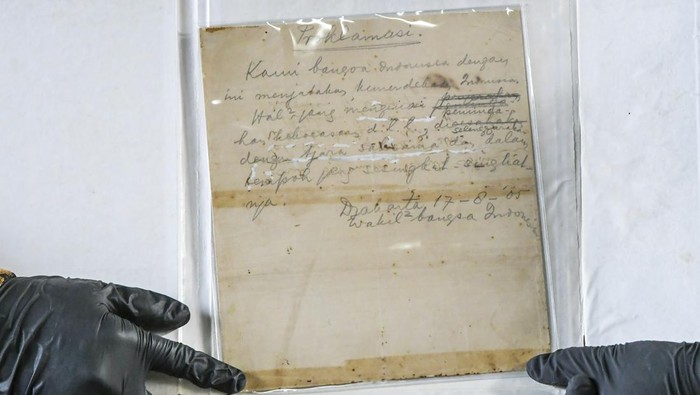 Proklamasi.
Kami bangsa Indonesia dengan
ini menjatakan kemerdekaan Indonesia.
Hal² jang mengenai
peminda-
han kekoeasaan d.l.l., dioesahakan
diselenggarakan
dengan tjara saksama dan dalam
tempoh jang sesingkat-singkat-
nja.
Djakarta, 17-8-'05
Wakil² bangsa Indonesia